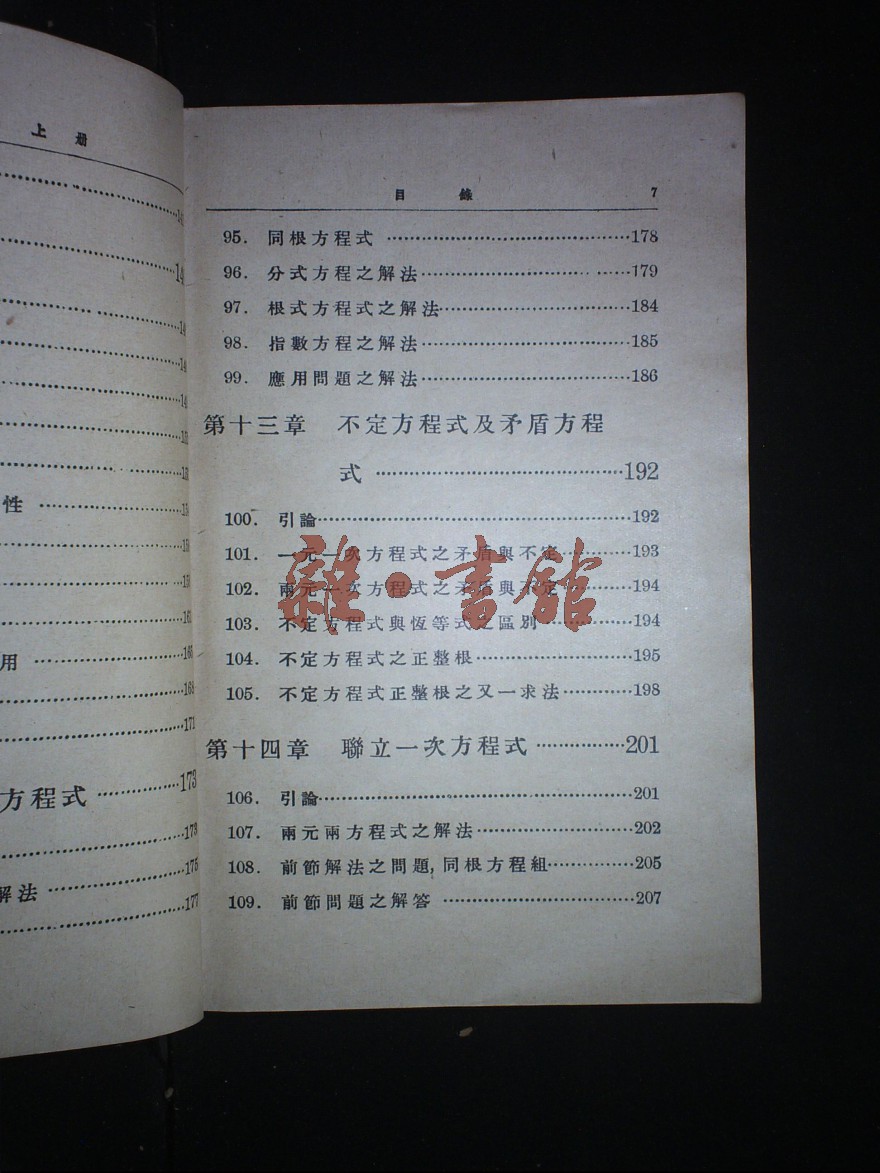 上册
性
用
168
171
方程式 173
173
解法 175
177
目錄 7
95. 同根方程式 178
96. 分式方程之解法 179
97. 根式方程式之解法 184
98. 指數方程之解法 185
99. 應用問題之解法 186
第十三章 不定方程式及矛盾方程
式 192
100. 引論 192
101. 一元一次方程式之矛盾與不定 193
102. 兩元一次方程式之矛盾與不定 194
103. 不定方程式與恆等式之區別 194
104. 不定方程式之正整根 195
105. 不定方程式正整根之又一求法 198
第十四章 聯立一次方程式 201
106. 引論 201
107. 兩元兩方程式之解法 202
108. 前節解法之問題,同根方程組 205
109. 前節問題之解答 207
雜·書館